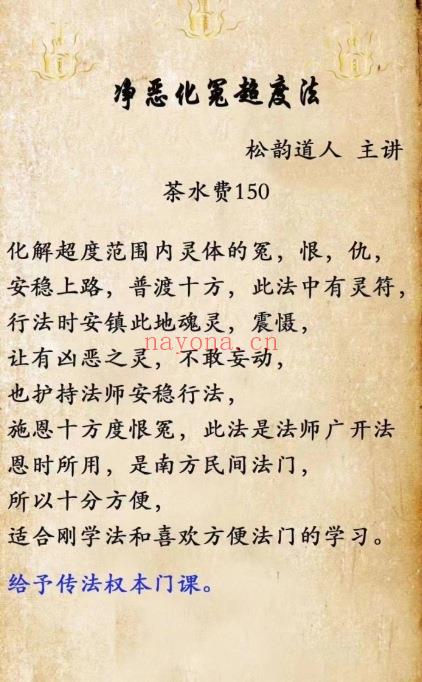 净恶化冤超度法
松韵道人 主讲
茶水费150
化解超度范围内灵体的冤，恨，仇，
安稳上路，普渡十方，此法中有灵符，
行法时安镇此地魂灵，震慑，
nayona.cn
让有凶恶之灵，不敢妄动，
也护持法师安稳行法，
施恩十方度恨冤，此法是法师广开法
恩时所用，是南方民间法门，
所以十分方便，
适合刚学法和喜欢方便法门的学习。
给予传法权本门课。